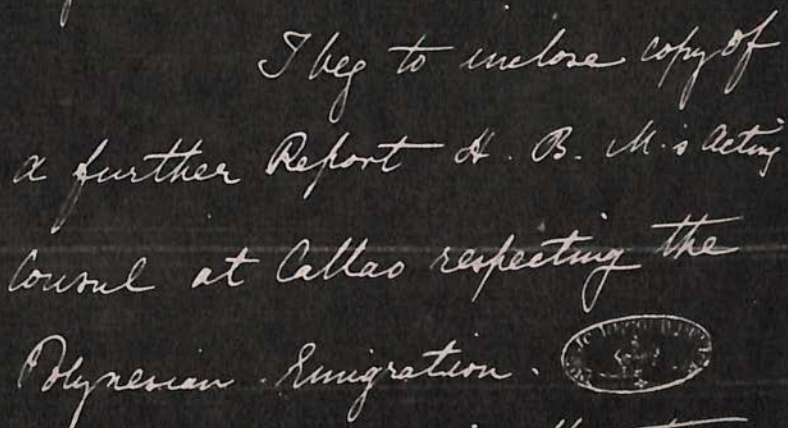 I beg to inclose copy of
a further Report H. B. M.'s Acting
Consul at Callao respecting the
Polynesian Emigration.